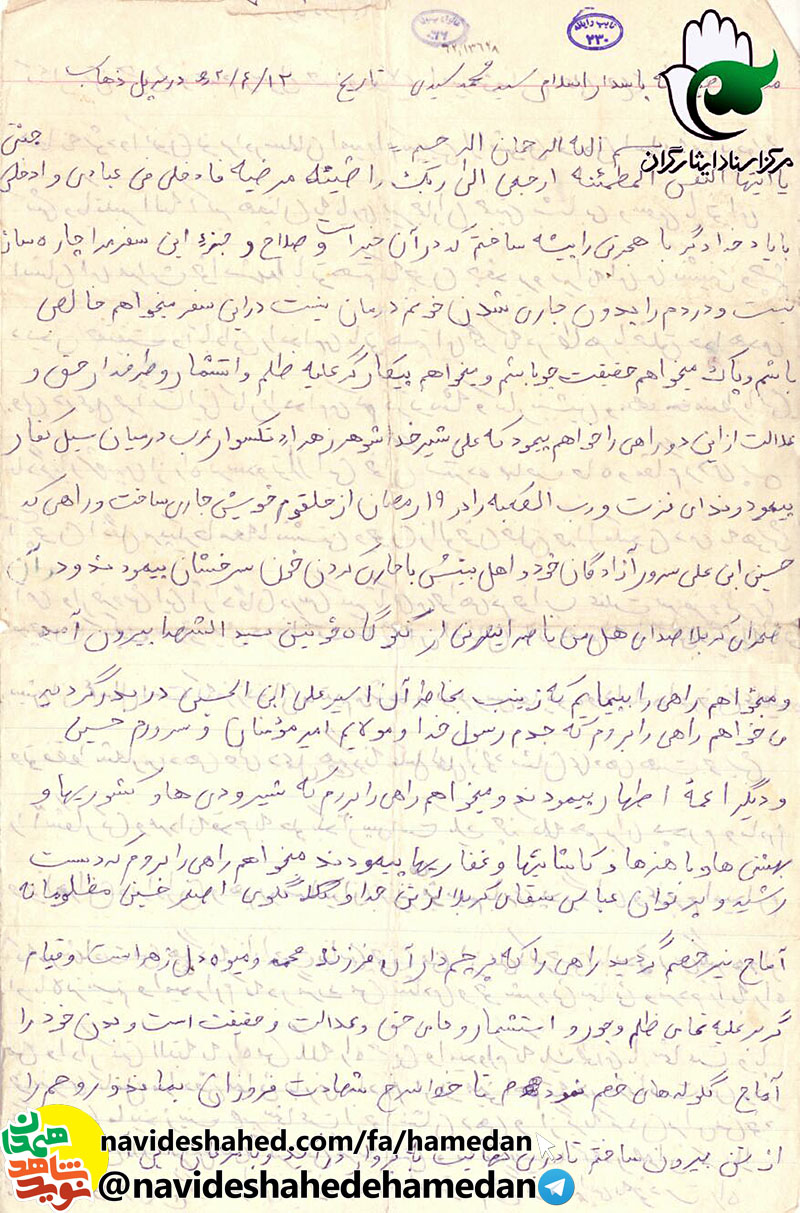 نایب رایانه
۲۳۰
۹۲/۱۳۶۲۸
پاسدار اسلام سید محمد سیدی تاریخ ۶۲/۶/۱۲ در سرپل ذهاب
مرکز اسناد ایثارگران
بسم الله الرحمان الرحیم =
جنتی
یا ایتها النفس المطمئنه ارجعی الی ربک راضیته مرضیه فادخلی فی عبادی و ادخلی
با یاد خدا دگر با هجرتی را پیشه ساختم که در آن خیر است و صلاح و جزء این سفر مرا چاره ساز
نیست و دردم را بدون جاری شدن خونم درمان نیست در این سفر میخواهم خالص
باشم و پاک میخواهم حقیقت جو باشم و میخواهم پیکار گر علیه ظلم و استثمار و طرفدار حق و
عدالت از این دو راهی را خواهم پیمود که علی شیر خدا شوهر زهرا و یکسوار عرب در میان سیل کفار
پیمود و ندای فزت و رب الکعبه را در ۱۹ رمضان از حلقوم خویش جاری ساخت و راهی که
حسین ابن علی سرور آزادگان خود و اهل بیتش با جاری کردن خون سرخشان پیمودند و در آن
صحرای کربلا صدای هل من ناصر اینصرنی از گلوگاه خونین سید الشهدا بیرون آمد
و میخواهم راهی را بپیمایم که زینب بخاطر آن اسیر علی ابن الحسین در بدر گردید
می خواهم راهی را بروم که جدم رسول خدا و مولایم امیر مؤمنان و سرورم حسین
و دیگر ائمه اطهار پیمودند و میخواهم راهی را بروم که شیرودی ها و کشوریها و
بهشتی ها و باهنرها و کاشانیها و غفاریها پیمودند میخواهم راهی را بروم که دست
رشید و پر توان عباس سقای کربلا از تن جدا و گلوی اصغر حسین مظلومانه
آماج تیر خصم گردید راهی را که پرچمدار آن فرزند محمد و میوه دل زهرا است و قیام
گر بر علیه تمامی ظلم و جور و استثمار و حامی حق و عدالت و حقیقت است و بدن خود را
آماج گلوله های خصم نمودم تا چراغ شهادت فروزان بماند و روحم را
از تن بیرون ساختم تا
navideshahed.com/fa/hamedan
@navideshahedehamedan
نوید شاهد همدان